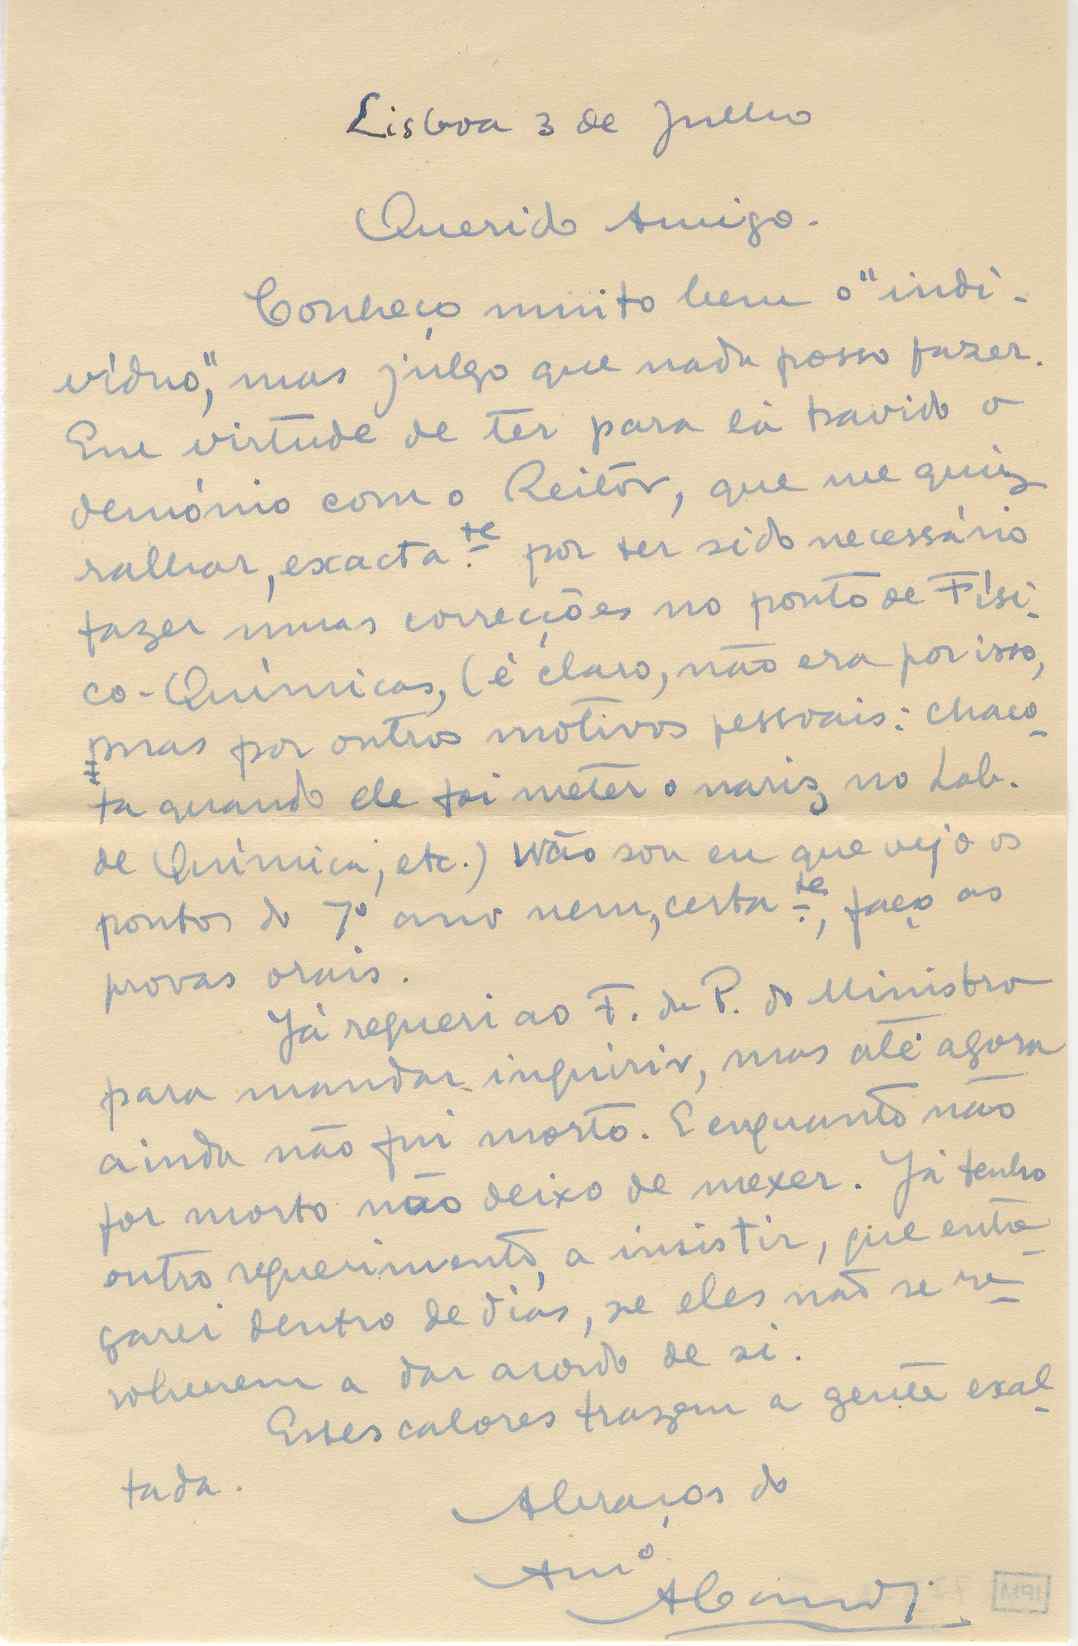 Lisboa 3 de Julho
Querido Amigo.
Conheço muito bem o "indi-
víduo", mas júlgo que nada posso fazer.
Em virtude de ter para lá havido o
demónio com o Reitôr, que me quiz
ralhar, exacta.te por ter sido necessário
fazer umas correcções no ponto de Físi-
co-Químicas, (é claro, não era por isso,
mas por outros motivos pessoais: chaco-
ta quando ele foi meter o nariz no Lab.
de Química, etc.) Não sou eu que vejo os
pontos do 7º ano nem, certa.te, faço as
provas orais.
Já requeri ao F. da P. do Ministro
para mandar inquirir, mas até agora
ainda não fui morto. E enquanto não
for morto não deixo de mexer. Já tenho
outro requerimento, a insistir, que entre-
garei dentro de dias, se eles não se re-
solverem a dar acordo de si.
Esses calores trazem a gente exal-
tada.
Abraços do
Amº
IPM